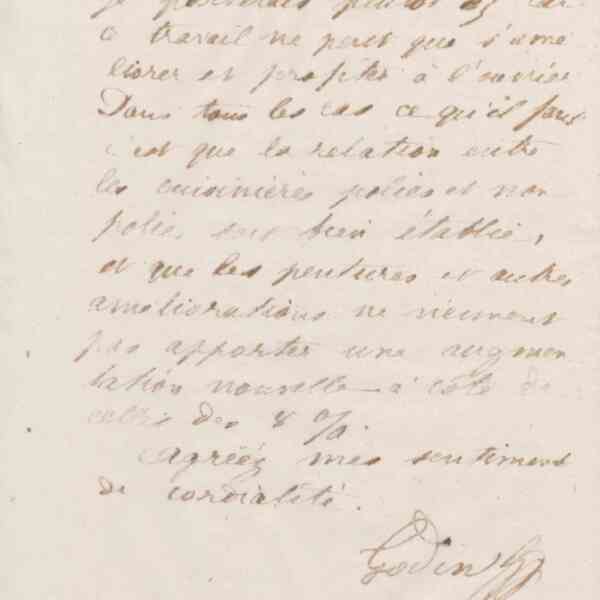 je
ce travail ne peut que s'amé
liorer et profiter à l'ouvrier
Dans tous les cas ce qu'il faut
c'est que la relation entre
les cuisinières polies et non
polies soit bien établie,
et que les pentures et autres
améliorations ne viennent
pas apporter une augmen
tation nouvelle à côté de
celle des 8 %.
Agréez mes sentiments
de cordialité.
Godin